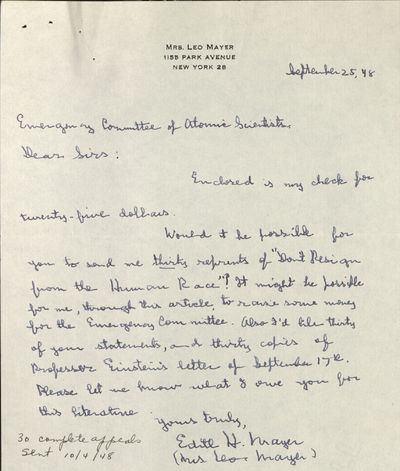 MRS. LEO MAYER
1155 PARK AVENUE
NEW YORK 28
September 25, '48
Emergency Committee of Atomic Scientists.
Dear Sirs:
Enclosed is my check for
twenty-five dollars.
Would it be possible for
you to send me thirty reprints of "Don't Resign
from the Human Race"? It might be possible
for me, through this article, to raise some money
for the Emergency Committee. Also I'd like thirty
of your statements, and thirty copies of
Professor Einstein's letter of September 17th.
Please let me know what I owe you for
this literature
Yours truly,
Edith H. Mayer
(Mrs Leo Mayer)
30 complete appeals
sent 10/4/48